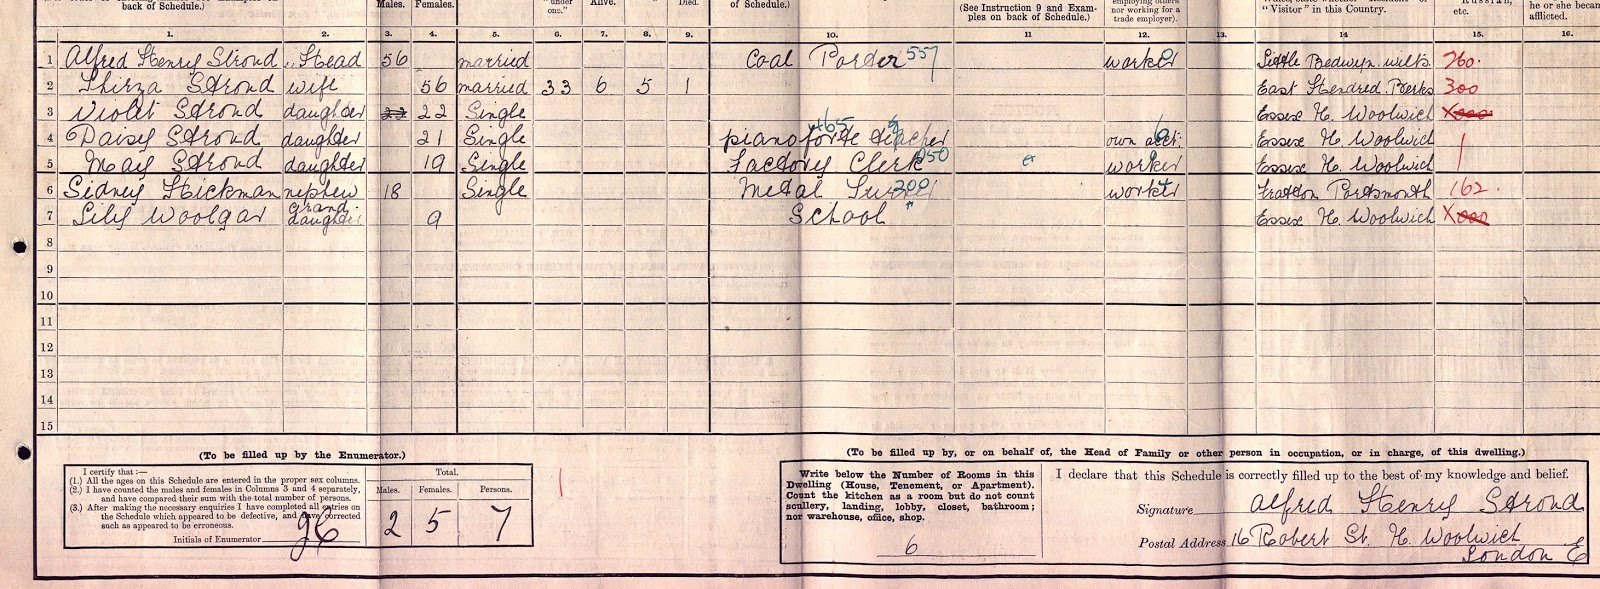 back of Schedule.)
Males. Females.
"under
ons."
Alive.
Died.
of Schedule.)
(See Instruction 9 and Exam-
ples on back of Schedule.)
employing others
nor working for a
trade employer).
"Visitor" in this Country.
etc.
he or she became
afflicted.
1. 2. 3. 4. 5. 6. 7. 8. 9. 10. 11 12. 13. 14 15. 16.
1 Alfred Henry Stroud Head 56 married Coal Porter 557 worker Little Bedwyn Wilts. 760.
2 Thirza Stroud wife 56 married 33 6 5 1 East Hendred Berks 300
3 Violet Stroud daughter 22 22 Single Essex N. Woolwich X000
4 Daisy Stroud daughter 21 Single pianoforte teacher 465 own acct: Essex N. Woolwich
5 May Stroud daughter 19 Single Factory Clerk 050 worker Essex N. Woolwich
6 Sidney Hickman nephew 18 Single Metal 200 worker Fratton Portsmouth 162.
7 Lily Woolgar Grand daughter 9 School Essex N. Woolwich X000
8
9
10
11
12
13
14
15
(To be filled up by the Enumerator.)
I certify that :—
(1.) All the ages on this Schedule are entered in the proper sex columns.
(2.) I have counted the males and females in Columns 3 and 4 separately,
and have compared their sum with the total number of persons.
(3.) After making the necessary enquiries I have completed all entries on
the Schedule which appeared to be defective, and have corrected
such as appeared to be erroneous.
Initials of Enumerator
Total.
Males. Females. Persons.
2 5 7
(To be filled up by, or on behalf of, the Head of Family or other person in occupation, or in charge, of this dwelling.)
Write below the Number of Rooms in this
Dwelling (House, Tenement, or Apartment).
Count the kitchen as a room but do not count
scullery, landing, lobby, closet, bathroom;
nor warehouse, office, shop.
6
I declare that this Schedule is correctly filled up to the best of my knowledge and belief.
Signature Alfred Henry Stroud
Postal Address 16 Robert St. N. Woolwich
London E